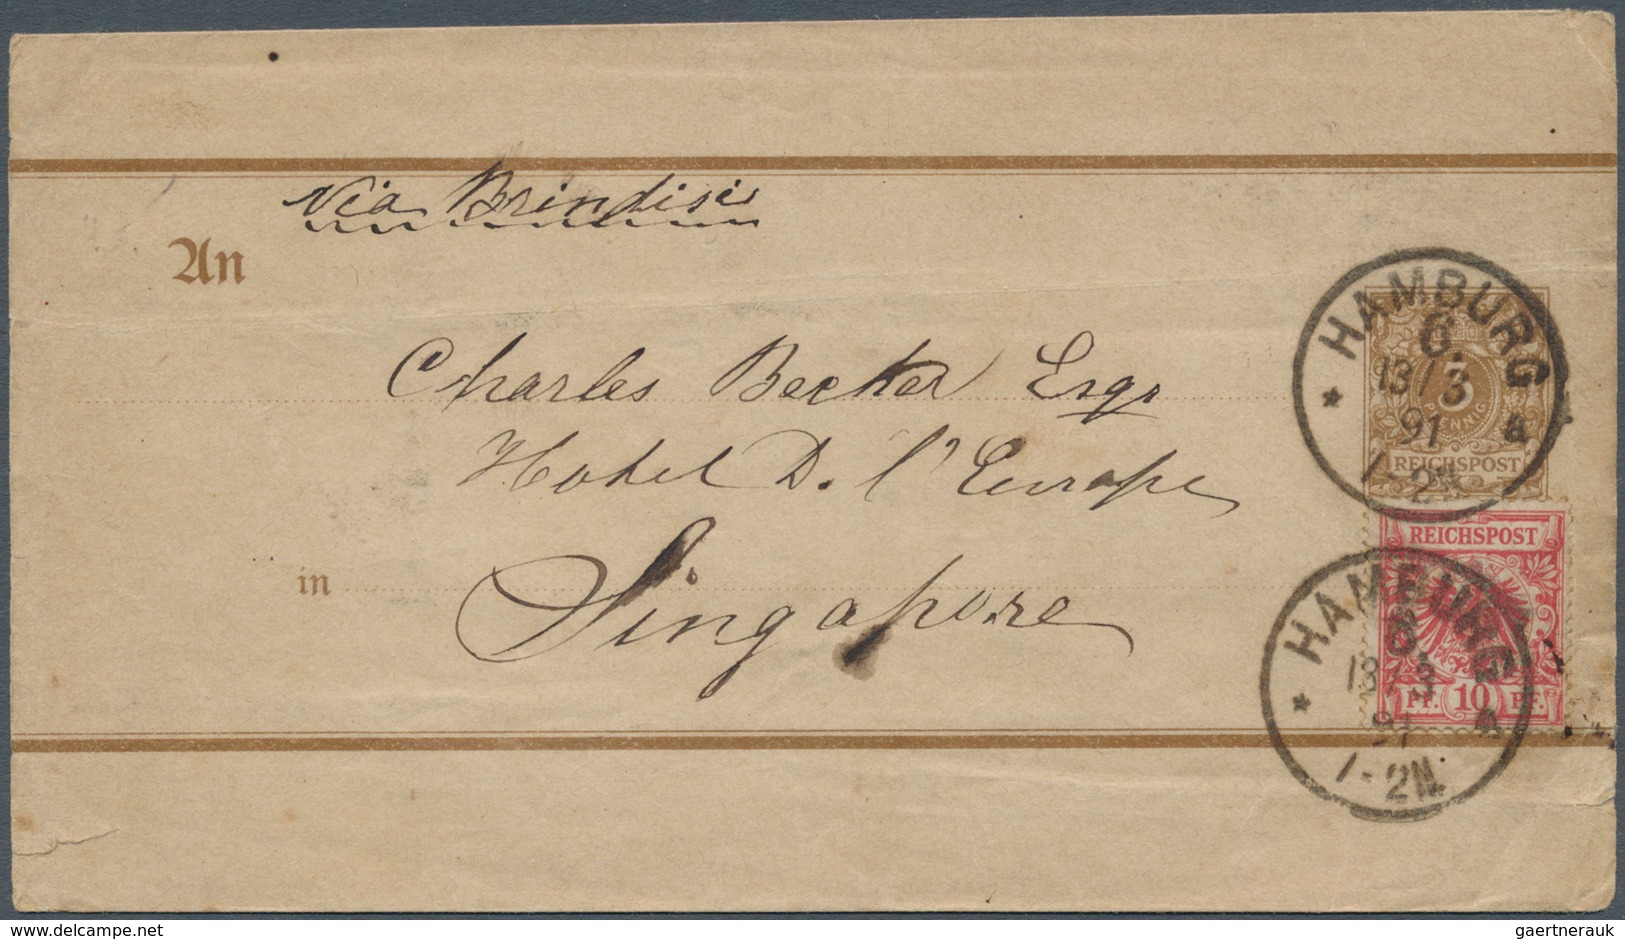 via Brindisi
An
Charles Becker Esqr
Hotel D. l'Europe
in Singapore
HAMBURG
6.
13/3
91
* a
1-2N.
3
PFENNIG
REICHSPOST
REICHSPOST
PF. 10 PF.
HAMBURG
6.
13/3
91
*
1-2N.
delcampe.net
gaertnerauk